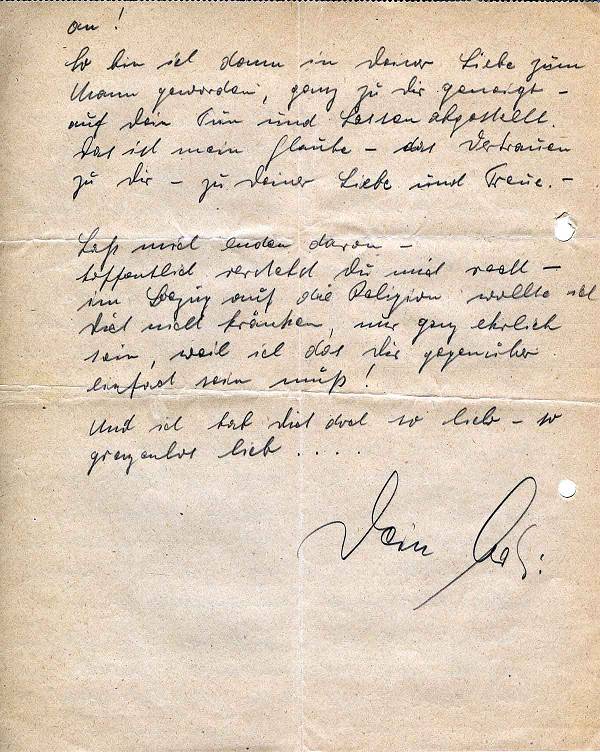 an!
So bin ich dann in Deiner Liebe zum
Mann geworden, ganz zu Dir geneigt –
auf Dein Tun und Lassen abgestellt.
Das ist mein Glaube – das Vertrauen
zu Dir – zu Deiner Liebe und Treue. –
Laß mich enden davon –
hoffentlich verstehst Du mich recht –
im Bezug auf die Religion wollte ich
Dich nicht kränken, nur ganz ehrlich
sein, weil ich das Dir gegenüber
einfach sein muß!
Und ich hab Dich doch so lieb – so
grenzenlos lieb . . . . .
Dein